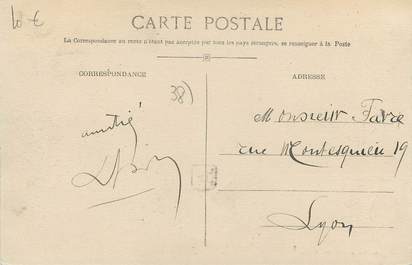 10 €
CARTE POSTALE
La Correspondance au recto n'étant pas acceptée par tous les pays étrangers, se renseigner à la Poste
CORRESPONDANCE
38)
amitié
ADRESSE
Monsieur Favre
rue Montesquieu 19
Lyon